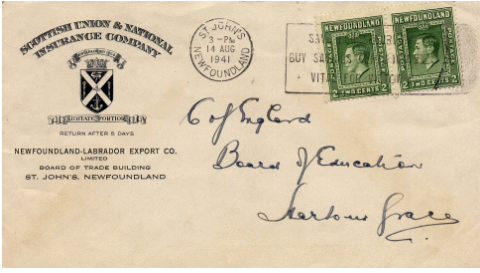 SCOTTISH UNION & NATIONAL
INSURANCE COMPANY
RETURN AFTER 5 DAYS
NEWFOUNDLAND-LABRADOR EXPORT CO.
LIMITED
BOARD OF TRADE BUILDING
ST. JOHN'S, NEWFOUNDLAND
ST. JOHN'S
3 - PM
14 AUG
1941
NEWFOUNDLAND
BUY
VITA
NEWFOUNDLAND
POSTAGE
POSTAGE
2 TWO CENTS 2
NEWFOUNDLAND
POSTAGE
POSTAGE
2 TWO CENTS 2
C of England
Board of Education
Harbour Grace